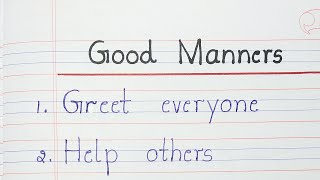 Good Manners
1. Greet everyone
2. Help others